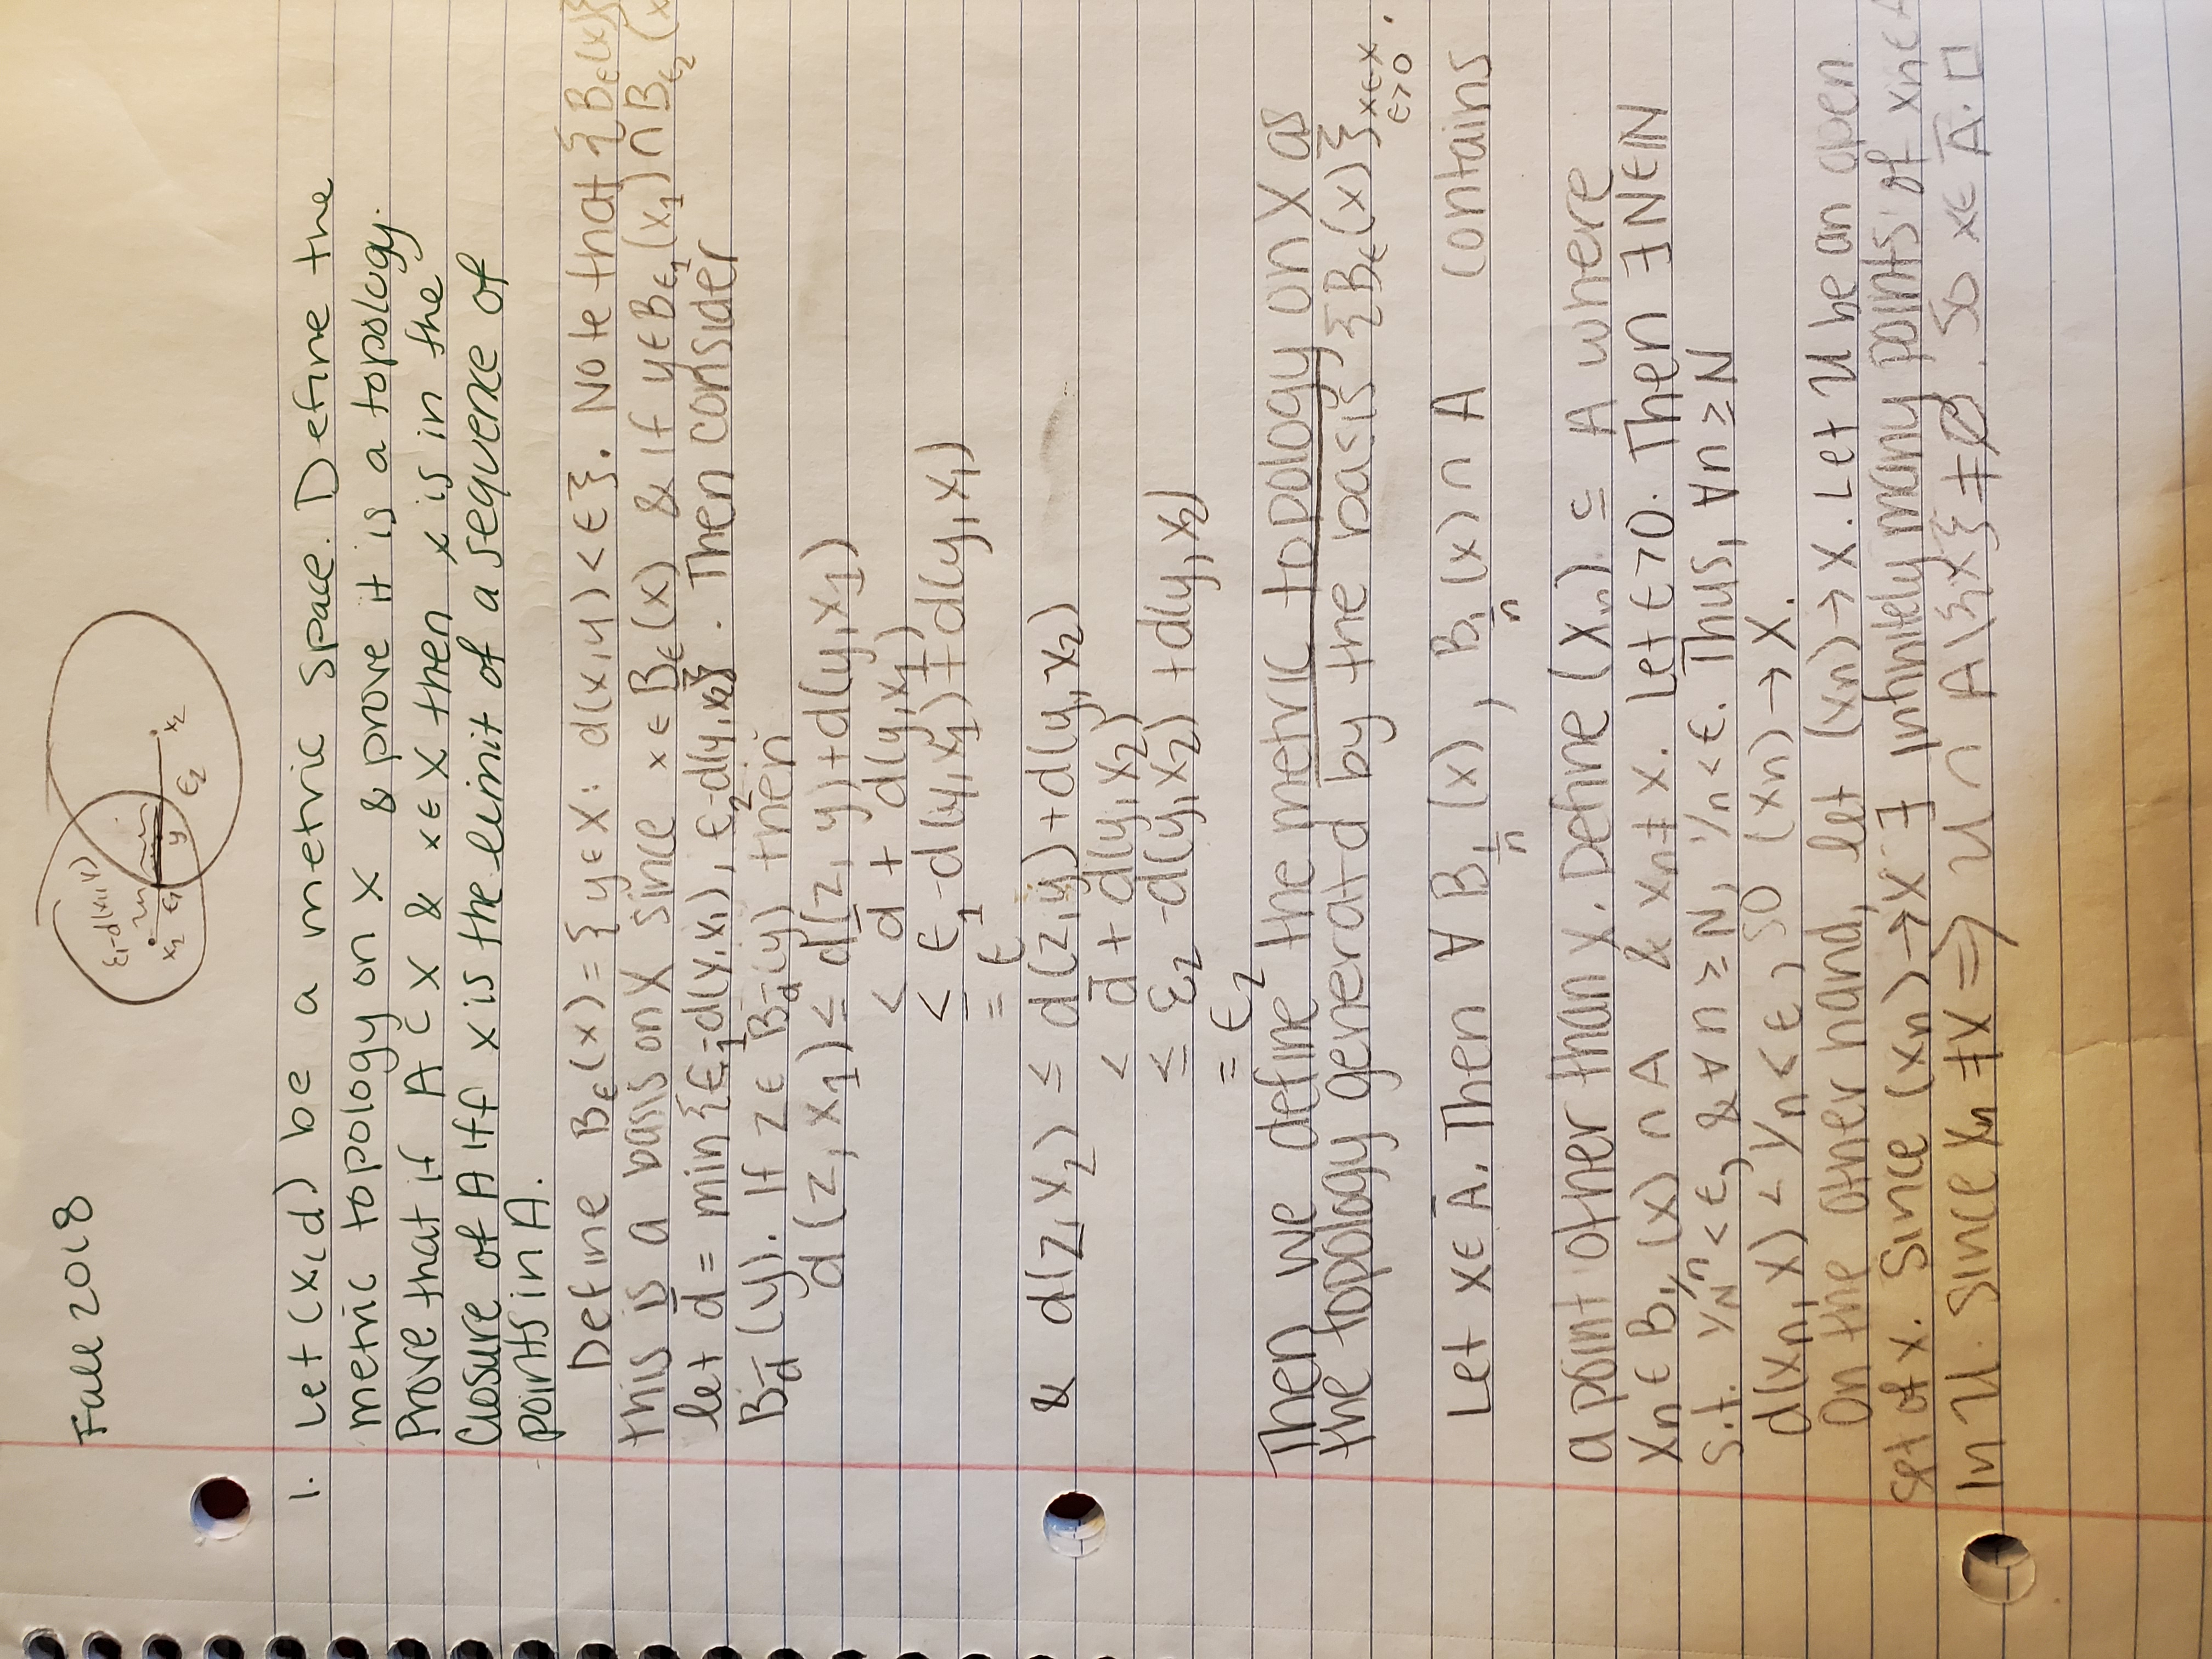 Fall 2018
ε₁-d(x₁,y)
x₂ ε₁ y ε₂ x₂
1. Let (X,d) be a metric space. Define the
metric topology on X & prove it is a topology.
Prove that if A ⊂ X & x∈X then x is in the
closure of A iff x is the limit of a sequence of
points in A.
Define B_ε(x) = {y∈X: d(x,y)<ε}. Note that {B_ε(x)}
this is a basis on X since x∈B_ε(x) & if y∈B_ε₁(x₁)∩B_ε₂(x
let d̄ = min{ε₁-d(y,x₁), ε₂-d(y,x₂)}. Then consider
B_d̄(y). If z∈ B_d̄(y) then
d(z,x₁) ≤ d(z,y)+d(y,x₁)
< d̄ + d(y,x₁)
≤ ε₁-d(y,x₁)+d(y,x₁)
= ε
& d(z,x₂) ≤ d(z,y)+d(y,x₂)
< d̄ + d(y,x₂)
≤ ε₂ -d(y,x₂) +d(y,x₂)
= ε₂
Then we define the metric topology on X as
the topology generatd by the basis {B_ε(x)}_x∈X
ε>0.
Let x∈Ā. Then ∀ B_1/n (x), B_1/n (x) ∩ A contains
a point other than x. Define (xₙ) ⊆ A where
xₙ∈B_1/n (x) ∩ A & xₙ≠x. Let ε>0. Then ∃N∈ℕ
s.t. 1/N<ε, & ∀n≥N, 1/n<ε. Thus, ∀n≥N
d(xₙ,x) < 1/n<ε, so (xₙ)→x.
On the other hand, let (xₙ)→x. Let U be an open
set of x. Since (xₙ)→x ∃ infinitely many points of xₙ∈A
in U. Since xₙ≠x ⇒ U ∩ A\{x}≠∅. So x∈Ā. □